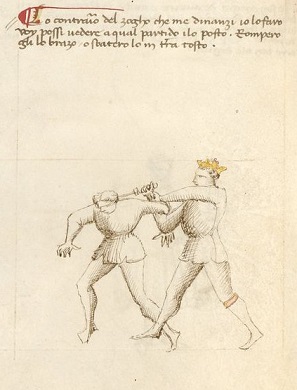 Lo contrãio del zogho che me dinanzi io lo faro
voy possi vedere a qual partido i lo posto . Rompero
gli lo brazo . o sbatero lo in tr̃a tosto .